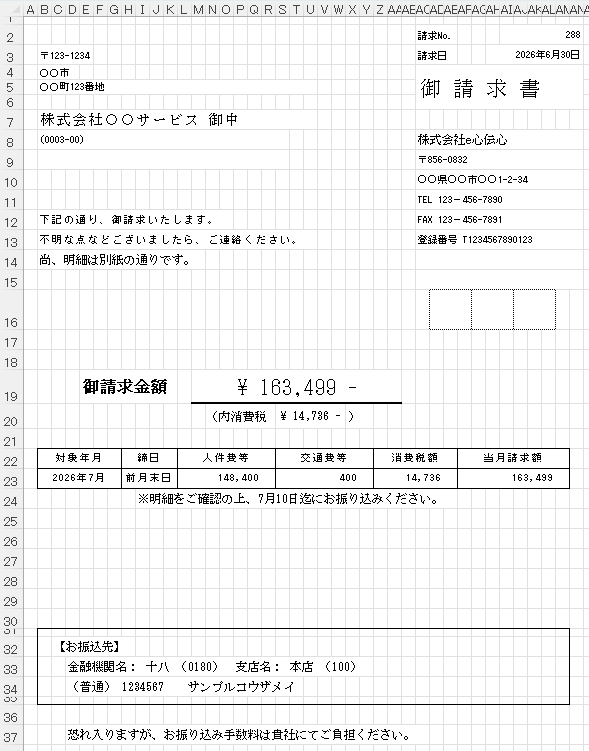 A B C D E F G H I J K L M N O P Q R S T U V W X Y Z
2 請求No. 288
3 〒123-1234 請求日 2026年6月30日
4 〇〇市
5 〇〇町123番地 御請求書
6
7 株式会社〇〇サービス 御中
8 (0003-00) 株式会社e心伝心
9 〒856-0832
10 〇〇県〇〇市〇〇1-2-34
11 TEL 123－456-7890
12 下記の通り、御請求いたします。 FAX 123－456-7891
13 不明な点などございましたら、ご連絡ください。 登録番号 T1234567890123
14 尚、明細は別紙の通りです。
15
16
17
18
19 御請求金額 ¥ 163,499 -
20 (内消費税 ¥ 14,736 - )
21
22 対象年月 締日 人件費等 交通費等 消費税額 当月請求額
23 2026年7月 前月末日 148,400 400 14,736 163,499
24 ※明細をご確認の上、7月10日迄にお振り込みください。
25
26
27
28
29
30
31
32 【お振込先】
33 金融機関名： 十八 （0180） 支店名： 本店 （100）
34 （普通） 1234567 サンプルコウザメイ
35
36
37 恐れ入りますが、お振り込み手数料は貴社にてご負担ください。